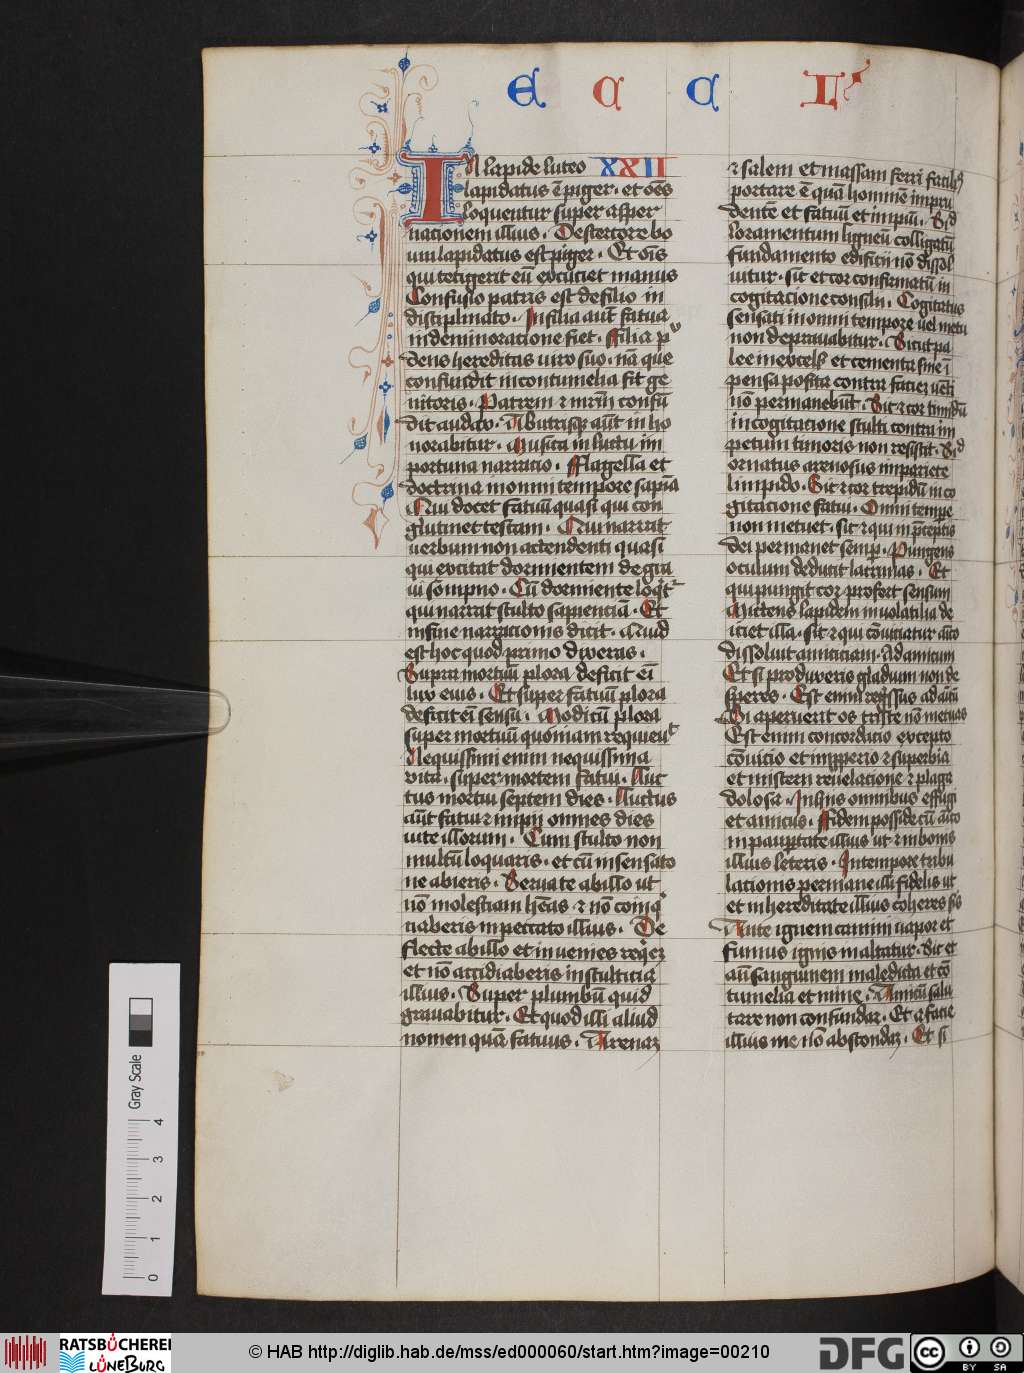 E C C L'
In lapide luteo XXII
lapidatus ē piger · et oēs
loquentur super asper
nacionem illius · De stercore bo
um lapidatus est piger · Et oīs
qui tetigerit eū excuciet manus
Confusio patris est de filio in
disciplinato · In filia aut̄ fatua
in deminoracione fiet · Filia p
dens hereditas viro suo · nā que
confundit in contumelia fit ge
nitoris · Patrem ⁊ mr̄m confū
dit audax · Ab utrisqꝫ aūt in ho
norabitur · Musica in luctu im
portuna narracio · Flagella et
doctrina in omni tempore sapīa
Qui docet fatuū quasi qui con
glutinet testam · Qui narrat
uerbum non attendenti quasi
qui excitat dormientem de gra
ui sompno · Cū dormiente loqt̄
qui narrat stulto sapienciā · Et
in fine narracionis dicit · Quid
est hoc quod primo dixeras ·
Supra mortuū plora deficit eī
lux eius · Et super fatuū plora
deficit eī sensū · Modicū plora
super mortuū quoniam requieut
Nequissimi enim nequissima
vita · super mortem fatui · Luc
tus mortui septem dies · Luctus
aūt fatui ⁊ impii omnes dies
uite illorum · Cum stulto non
multū loquaris · et cū insensato
ne abieris · Serua te ab illo ut
nō molestiam hēas · ⁊ nō coinq
naberis in peccato illius · De
flecte ab illo et inuenies reqēꝫ
et nō accidiaberis in stulticia
illius · Super plumbū quid
grauabitur · Et quod illi aliud
nomen quā fatuus · Arenaꝫ
⁊ salem et massam ferri facilꝰ
portare ē quā hominē impru
dentē et fatuū et impiū · Sid
loramentum ligneū colligatū
fundamento edificii nō dissol
uitur · sic et cor confirmatū in
cogitacione consilii · Cogitatus
sensati in omni tempore uel metu
non deprauabitur · Sicut pa
lee in excelsꝭ et cementa sine ī
pensa posita contra faciē vēti
nō permanebūt · Sic ⁊ cor timidū
in cogitacione stulti contra im
petum timoris non resistit · Sid
ornatus arenosus in pariete
limpido · Sic ⁊ cor trepidū in co
gitacione fatui · Omni tempe
non metuet · sic ⁊ qui in p̄ceptis
dei permanet semp̄ · Pungens
oculum deducit lacrimas · Et
qui pungit cor profert sensum
Mittens lapidem in volatilia de
iciet illa · sic ⁊ qui cōuiciatur aīco
dissoluit amiciciam · Ad amicum
Et si produxeris gladium non de
speres · Est enim regressus ad aīcū
Si aperuerit os triste nō metuas
Est enim concordacio excepto
cōuicio et impperio ⁊ superbia
et misterii reuelacione ⁊ plaga
dolosa · In hiis omnibus effugi
et amicus · Fidem posside cū aīco
in paup̄tate illius ut ⁊ in bonis
illius leteris · In tempore tribu
lacionis permane illi fidelis ut
et in hereditate illius coheres sis
Ante ignem camini vapor et
fumus ignis inaltatur · sic et
an̄ sanguinem maledicta et cō
tumelia et mine · Amicū salu
tare non confundar · Et a facie
illius me nō abscondaꝫ · Et si
Gray Scale
0 1 2 3 4
RATSBÜCHEREI
LÜNEBURG
© HAB http://diglib.hab.de/mss/ed000060/start.htm?image=00210
DFG
cc BY SA